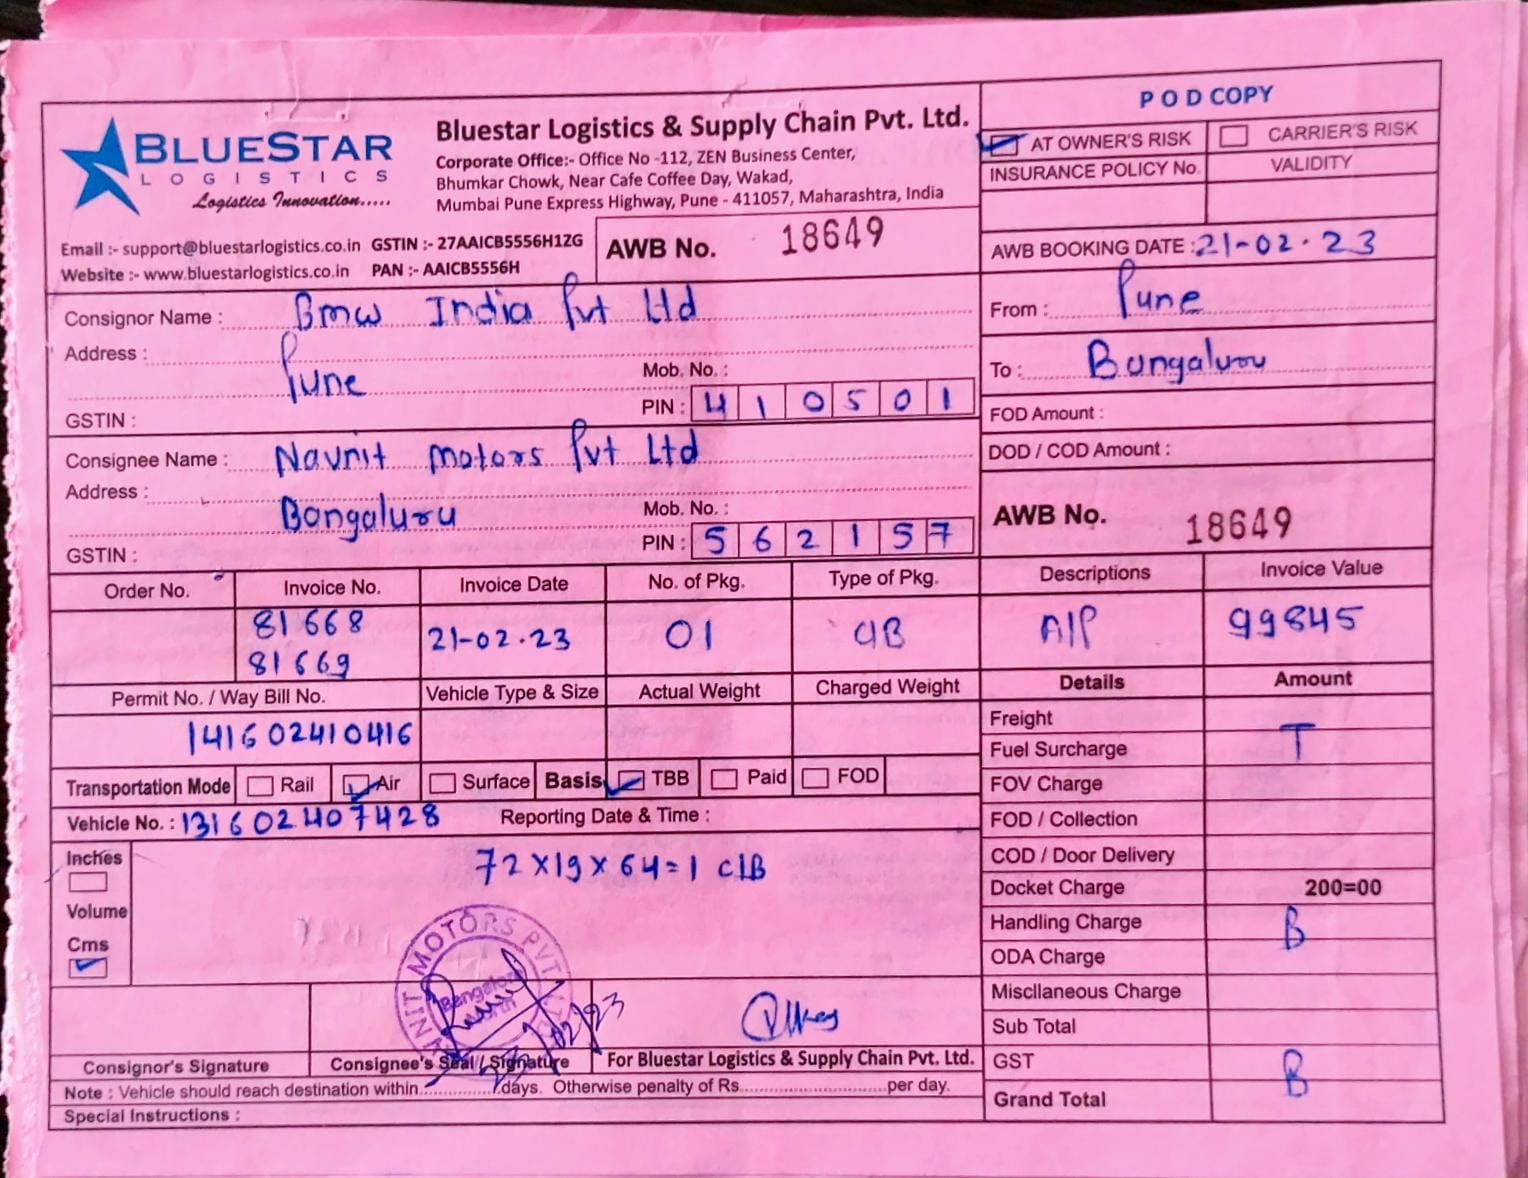 BLUESTAR
LOGISTICS
Logistics Innovation.....
Bluestar Logistics & Supply Chain Pvt. Ltd.
Corporate Office:- Office No -112, ZEN Business Center,
Bhumkar Chowk, Near Cafe Coffee Day, Wakad,
Mumbai Pune Express Highway, Pune - 411057, Maharashtra, India
Email :- support@bluestarlogistics.co.in GSTIN :- 27AAICB5556H1ZG
Website :- www.bluestarlogistics.co.in PAN :- AAICB5556H
AWB No. 18649
POD COPY
AT OWNER'S RISK CARRIER'S RISK
INSURANCE POLICY No. VALIDITY
AWB BOOKING DATE : 21-02.23
Consignor Name : Bmw India Pvt Ltd
Address : Pune
Mob. No. :
GSTIN : PIN : 410501
From : Pune
To : Bangaluru
FOD Amount :
DOD / COD Amount :
Consignee Name : Navnit motors Pvt Ltd
Address : Bangaluru
Mob. No. :
GSTIN : PIN : 562157
AWB No. 18649
Order No. Invoice No. Invoice Date No. of Pkg. Type of Pkg. Descriptions Invoice Value
81668
81669 21-02.23 01 CIB AIP 99845
Permit No. / Way Bill No. Vehicle Type & Size Actual Weight Charged Weight
141602410416
Transportation Mode Rail Air Surface Basis TBB Paid FOD
Vehicle No. : 131602407428 Reporting Date & Time :
Inches
Volume
Cms
72x19x64=1 CIB
Details Amount
Freight
Fuel Surcharge T
FOV Charge
FOD / Collection
COD / Door Delivery
Docket Charge 200=00
Handling Charge B
ODA Charge
Miscllaneous Charge
Sub Total
GST B
Grand Total
NIT MOTORS PVT LTD
Bangalore
Consignor's Signature Consignee's Seal / Signature For Bluestar Logistics & Supply Chain Pvt. Ltd.
Note : Vehicle should reach destination within..............days. Otherwise penalty of Rs..............................per day.
Special Instructions :